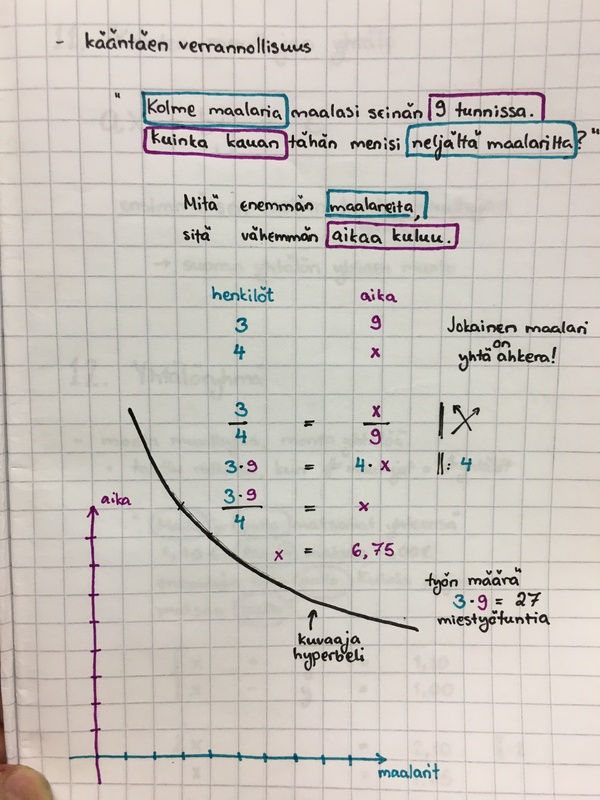 - kääntäen verrannollisuus
"Kolme maalaria maalasi seinän 9 tunnissa.
Kuinka kauan tähän menisi neljältä maalarilta?"
Mitä enemmän maalareita,
sitä vähemmän aikaa kuluu.
henkilöt aika
3 9
4 x
Jokainen maalari
on
yhtä ahkera!
3/4 = x/9
3·9 = 4·x ||: 4
3·9/4 = x
x = 6,75
aika
työn määrä
3·9 = 27
miestyötuntia
↑
kuvaaja
hyperbeli
maalarit